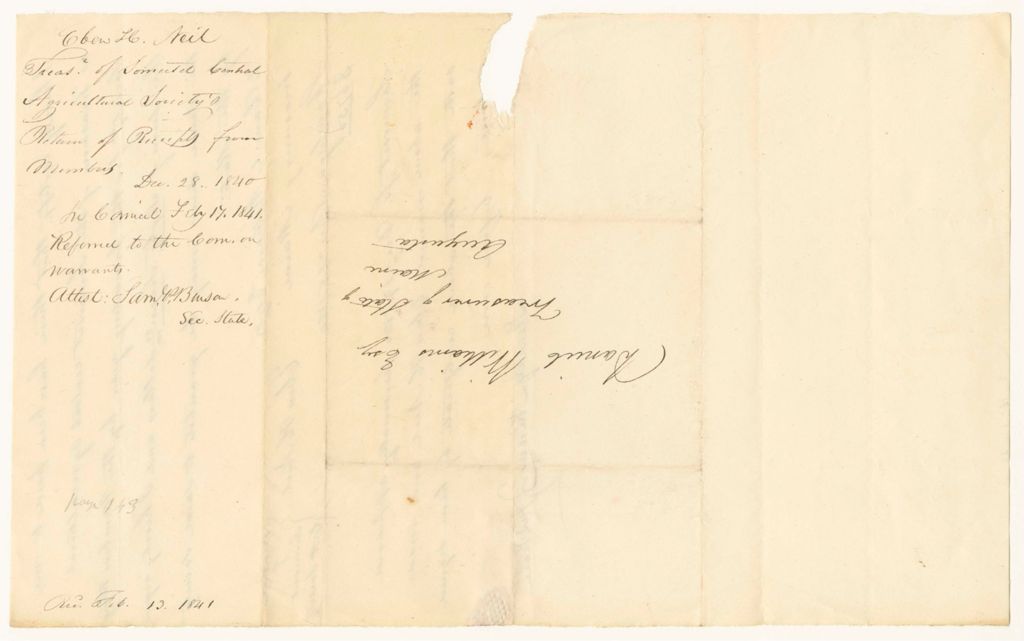 Eben H. Neil
Treasr. of Somerset Central
Agricultural Society's
Return of Receipts from
Members.
Dec. 28. 1840
In Council Feby 17. 1841.
Referred to the Com. on
Warrants.
Attest: Saml. P. Benson,
Sec. State.
page 143
Rec. Feb. 13. 1841
Daniel Williams Esq
Treasurer of State of
Maine
Augusta